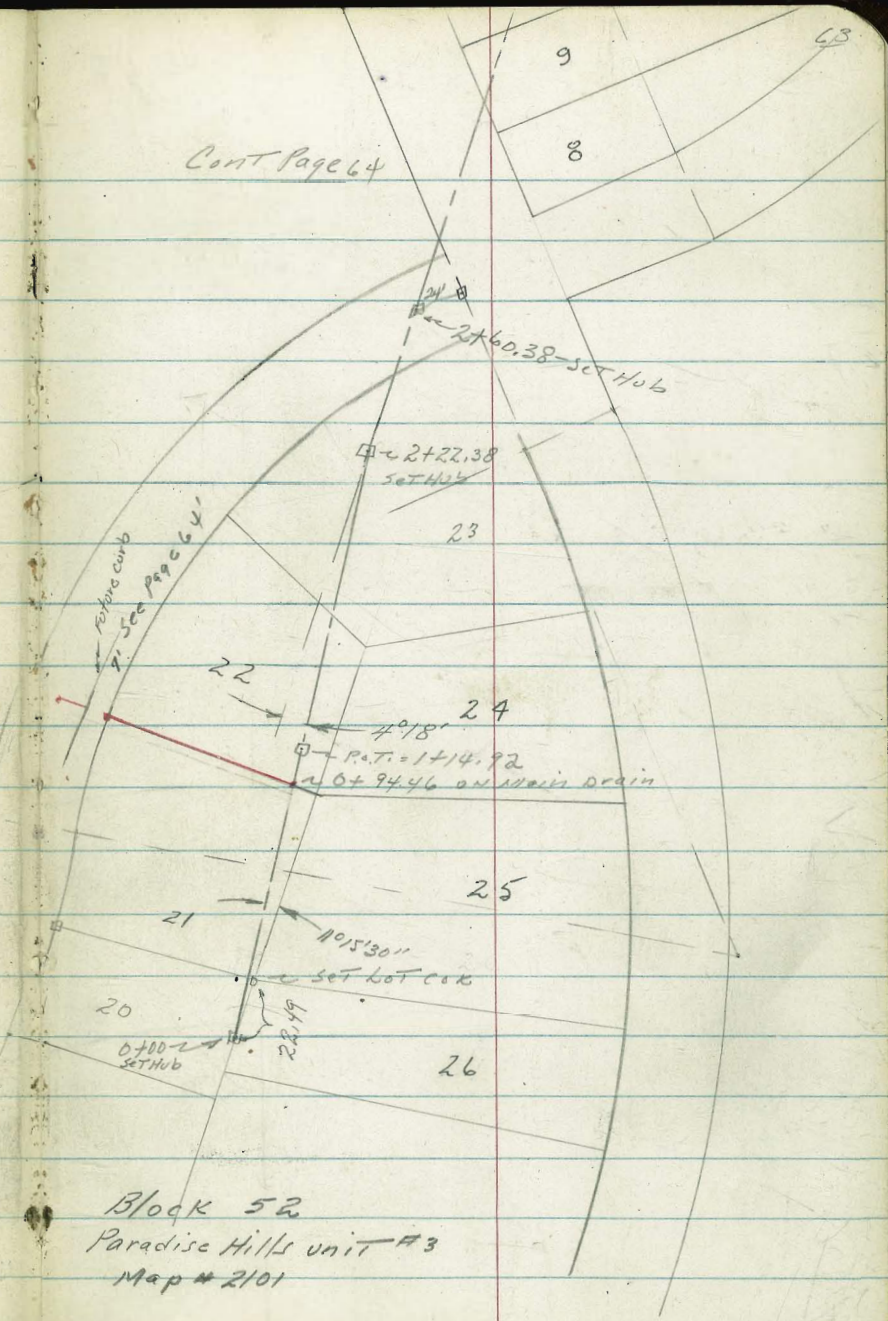 63
9
8
Cont Page 64
24'
2+60.38-Set Hub
2+22.38
Set Hub
23
Future Curb
See Page 64
22
24
4°18'
P.O.T. = 1+14.92
0+94.46 on Main Drain
25
21
Set Lot Cor
20
22.49
0+00
Set Hub
26
Block 52
Paradise Hills unit #3
Map # 2101